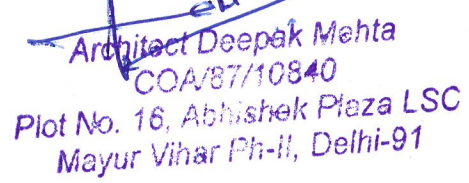 Architect Deepak Mehta
COA/87/10840
Plot No. 16, Abhishek Plaza LSC
Mayur Vihar Ph-II, Delhi-91